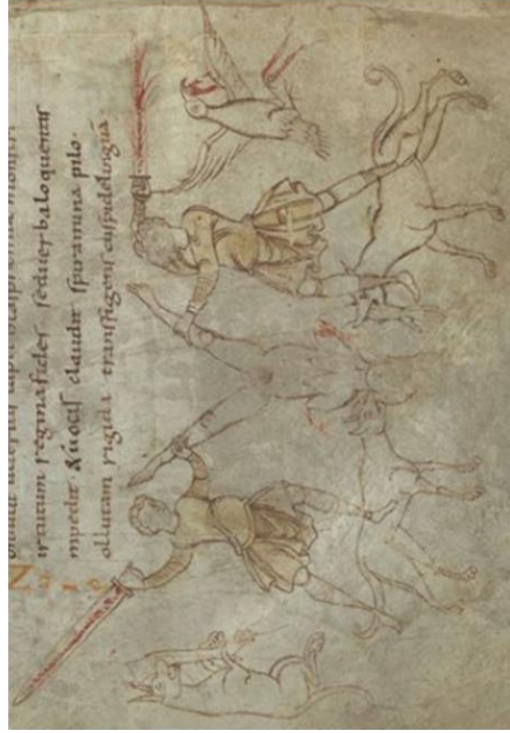 irtutum regina fides seduerba loquentis
mpedit · & uocis claudit spiramina pilo ·
ollutam rigida transfigens cuspide linguā ·